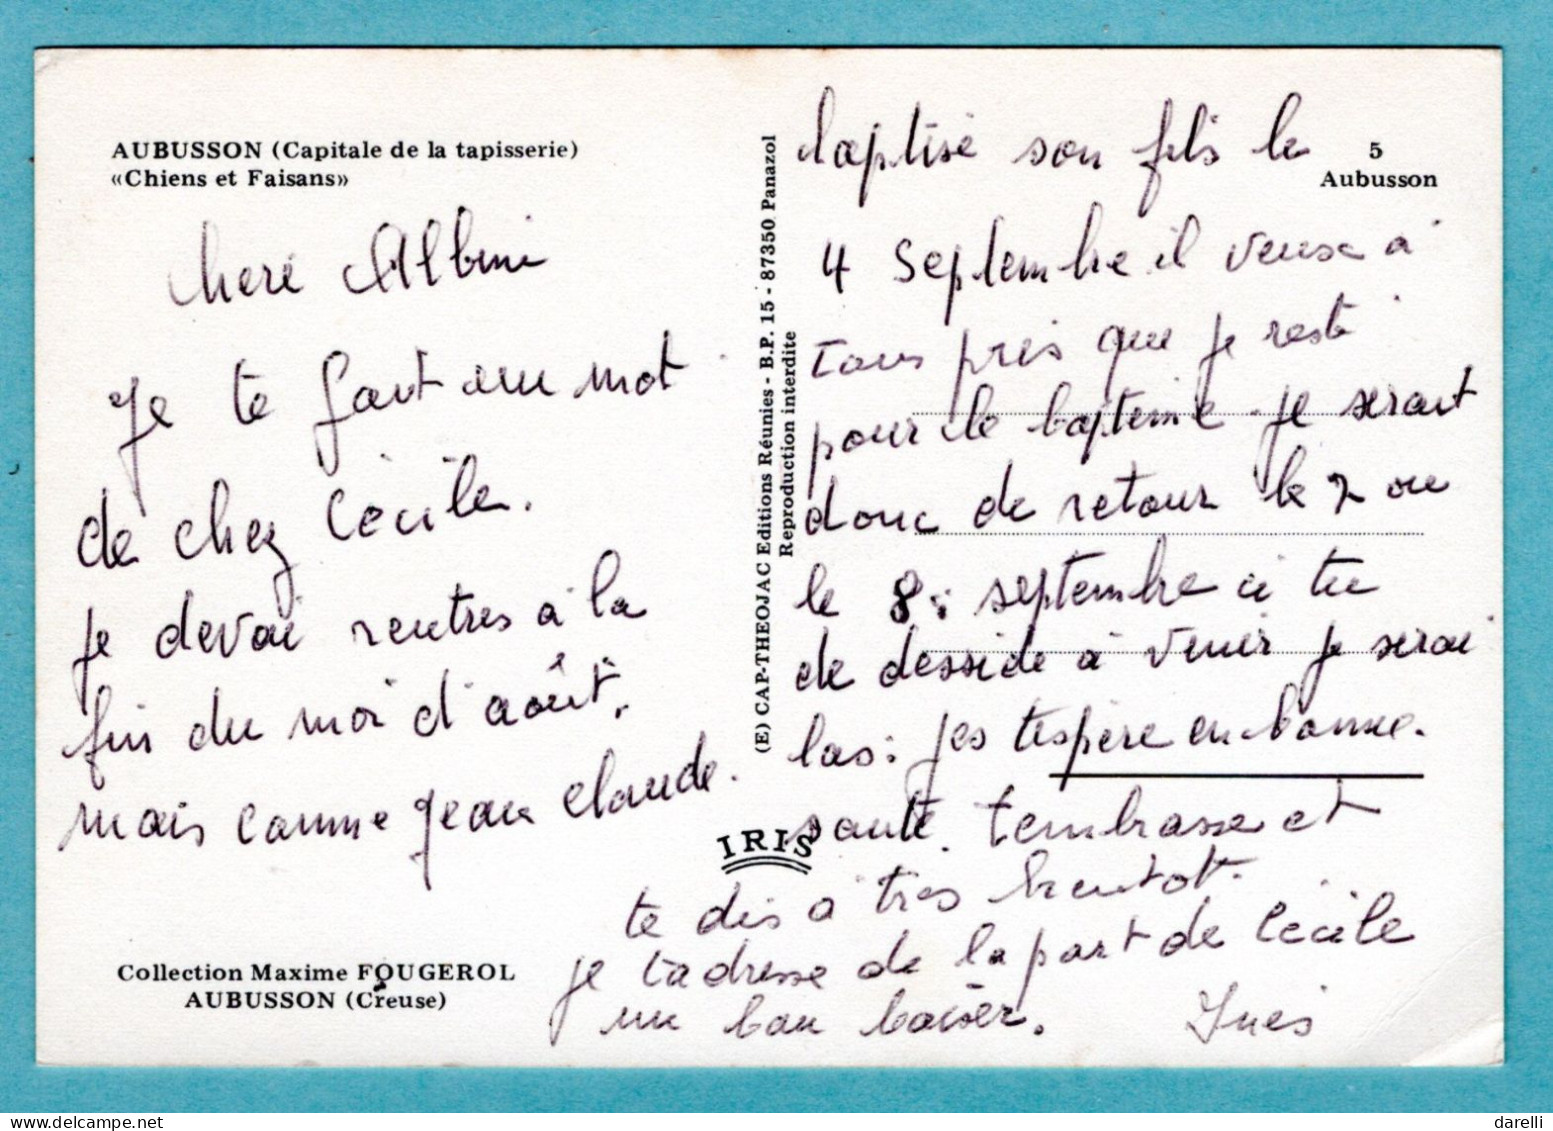 AUBUSSON (Capitale de la tapisserie)
«Chiens et Faisans»
chere Albini
Je te fait un mot
de chez Cécile.
Je devai rentres à la
fin du moi d'août.
mais comme Jean claude.
Collection Maxime FOUGEROL
AUBUSSON (Creuse)
(E) CAP-THEOJAC Editions Réunies - B.P. 15 - 87350 Panazol
Reproduction interdite
IRIS
5
Aubusson
baptise son fils le
4 septembre il veux à
tous pris que je reste
pour le bapteme. Je serait
donc de retour le 7 ou
le 8: septembre ci tu
de desside à venir je serai
las: jes tespère en bonne.
santé. tembrasse et
te dis a tres bientot.
je tadresse de la part de Cécile
un bon baiser. Inès
darelli